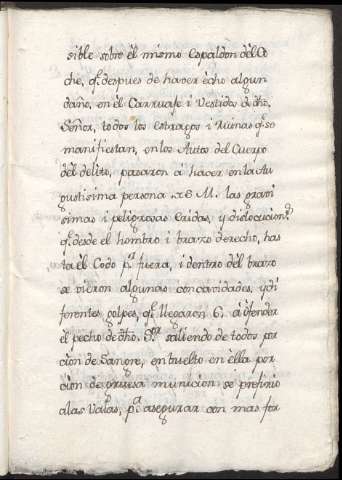 sible sobre êl mismo Espaldon dêl Co
che, q.^e despues de haver êcho algun
daño, en êl Carruaje i Vestidos de dho,
Señor, todos los estragos i Ruinas q.^e se
manifiestan, en los Autos del Cuerpo
dêl delito, pasaron â hacer en la Au
gustisima persona de S. M. las gravi
simas i peligrosas eridas, y dislocacion.^s
q.^e desde el hombro i brazo derecho, has
ta êl Codo p.^r fuera, i dentro dêl brazo
se vieron algunas concavidades, y di
ferentes golpes, q.^e llegaron â ôfender
el pecho de dho. S.^or saliendo de todos por
cion de Sangre, enbuelto en êlla por
cion de gruesa municion se prefirio
a las Valas, p.^a asegurar con mas for